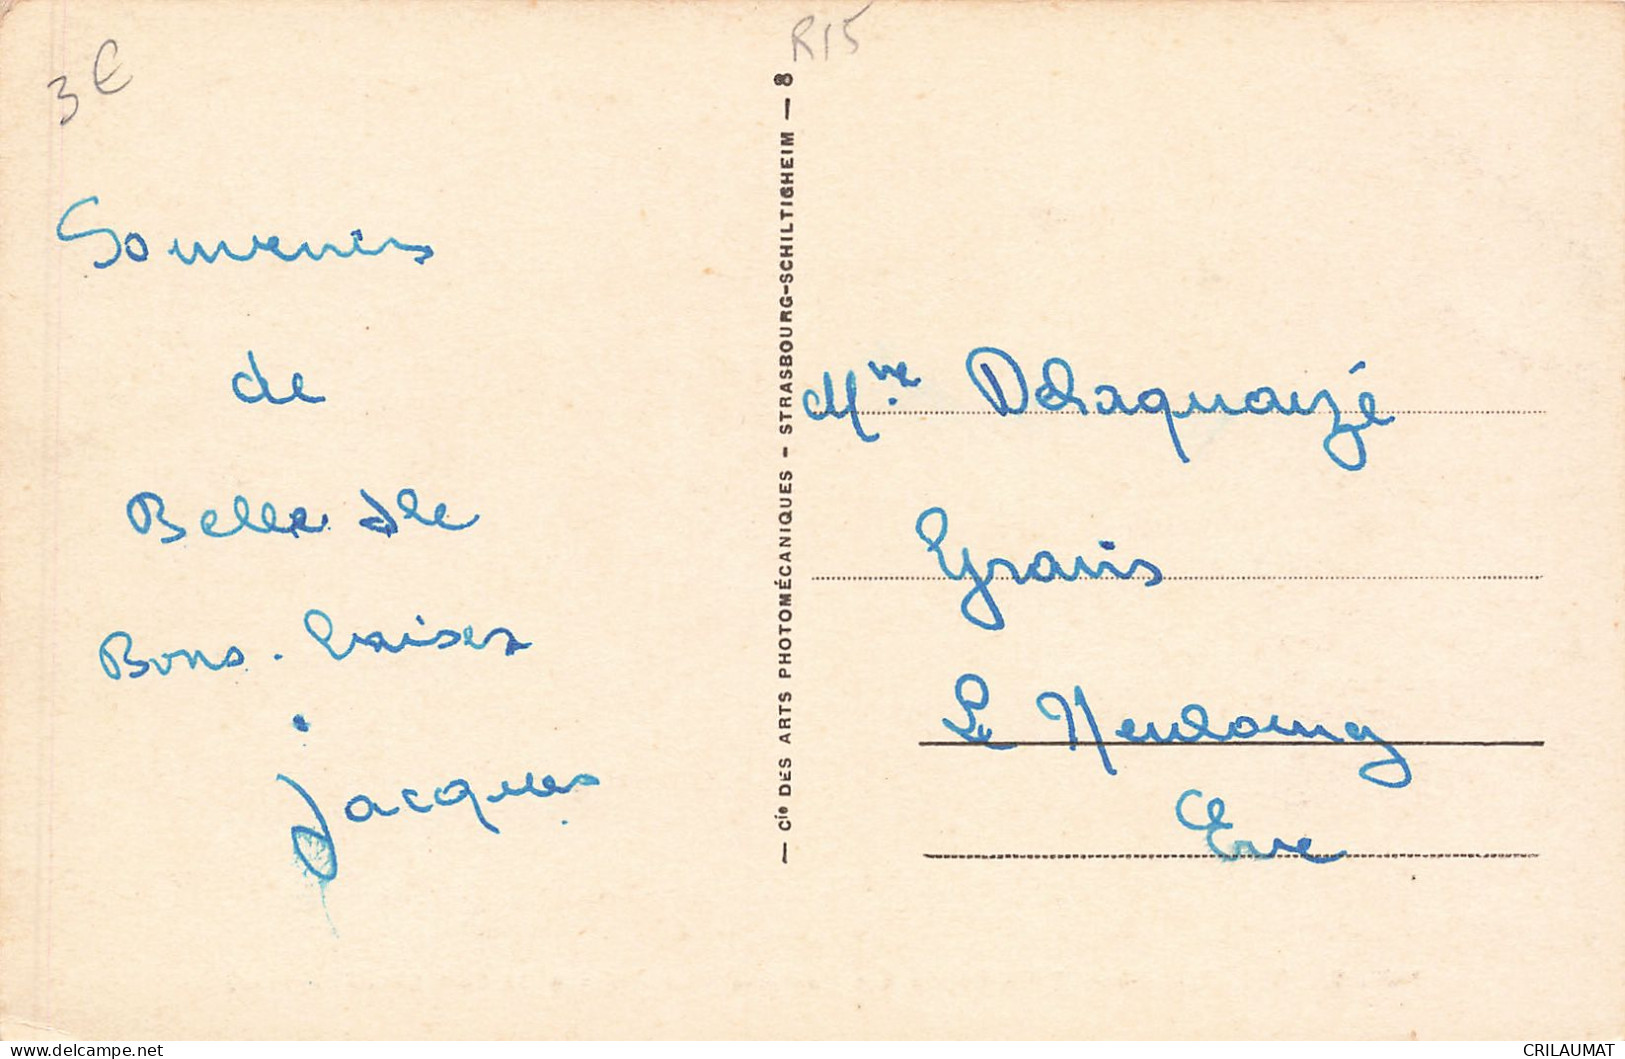 3€
R15
Souvenirs
de
Belle Ile
Bons baisers
Jacques
— Cie DES ARTS PHOTOMÉCANIQUES - STRASBOURG-SCHILTIGHEIM — 8
Mme Delaquaizé
Grains
Le Neubourg
Eure
www.delcampe.net
CRILAUMAT